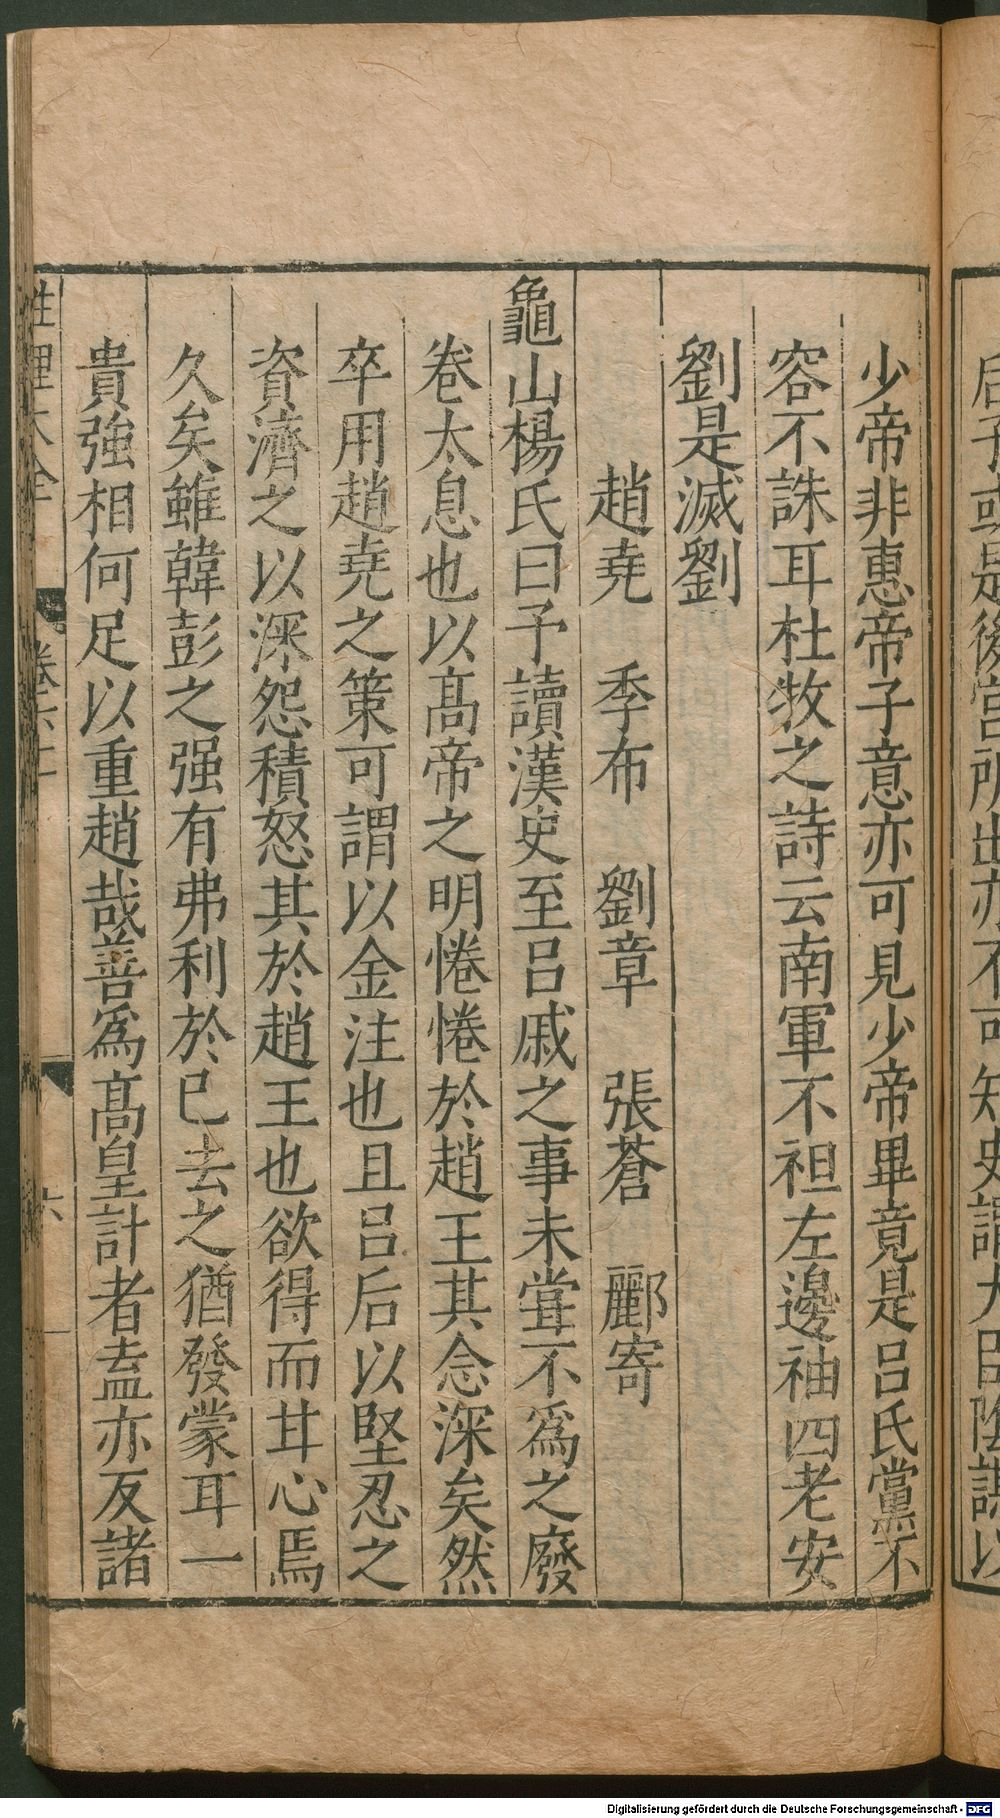 后子或是後宮所出亦不可知史謂大臣陰謀以
少帝非惠帝子意亦可見少帝畢竟是呂氏黨不
容不誅耳杜牧之詩云南軍不袒左邊袖四老安
劉是滅劉
趙堯　季布　劉章　張蒼　酈寄
龜山楊氏曰予讀漢史至呂戚之事未甞不爲之廢
卷太息也以髙帝之明惓惓於趙王其念深矣然
卒用趙堯之策可謂以金注也且呂后以堅忍之
資濟之以深怨積怒其於趙王也欲得而甘心焉
久矣雖韓彭之强有弗利於已去之猶發蒙耳一
貴強相何足以重趙哉善爲髙皇計者盍亦反諸
性理大全　卷六十　六
Digitalisierung gefördert durch die Deutsche Forschungsgemeinschaft - DFG